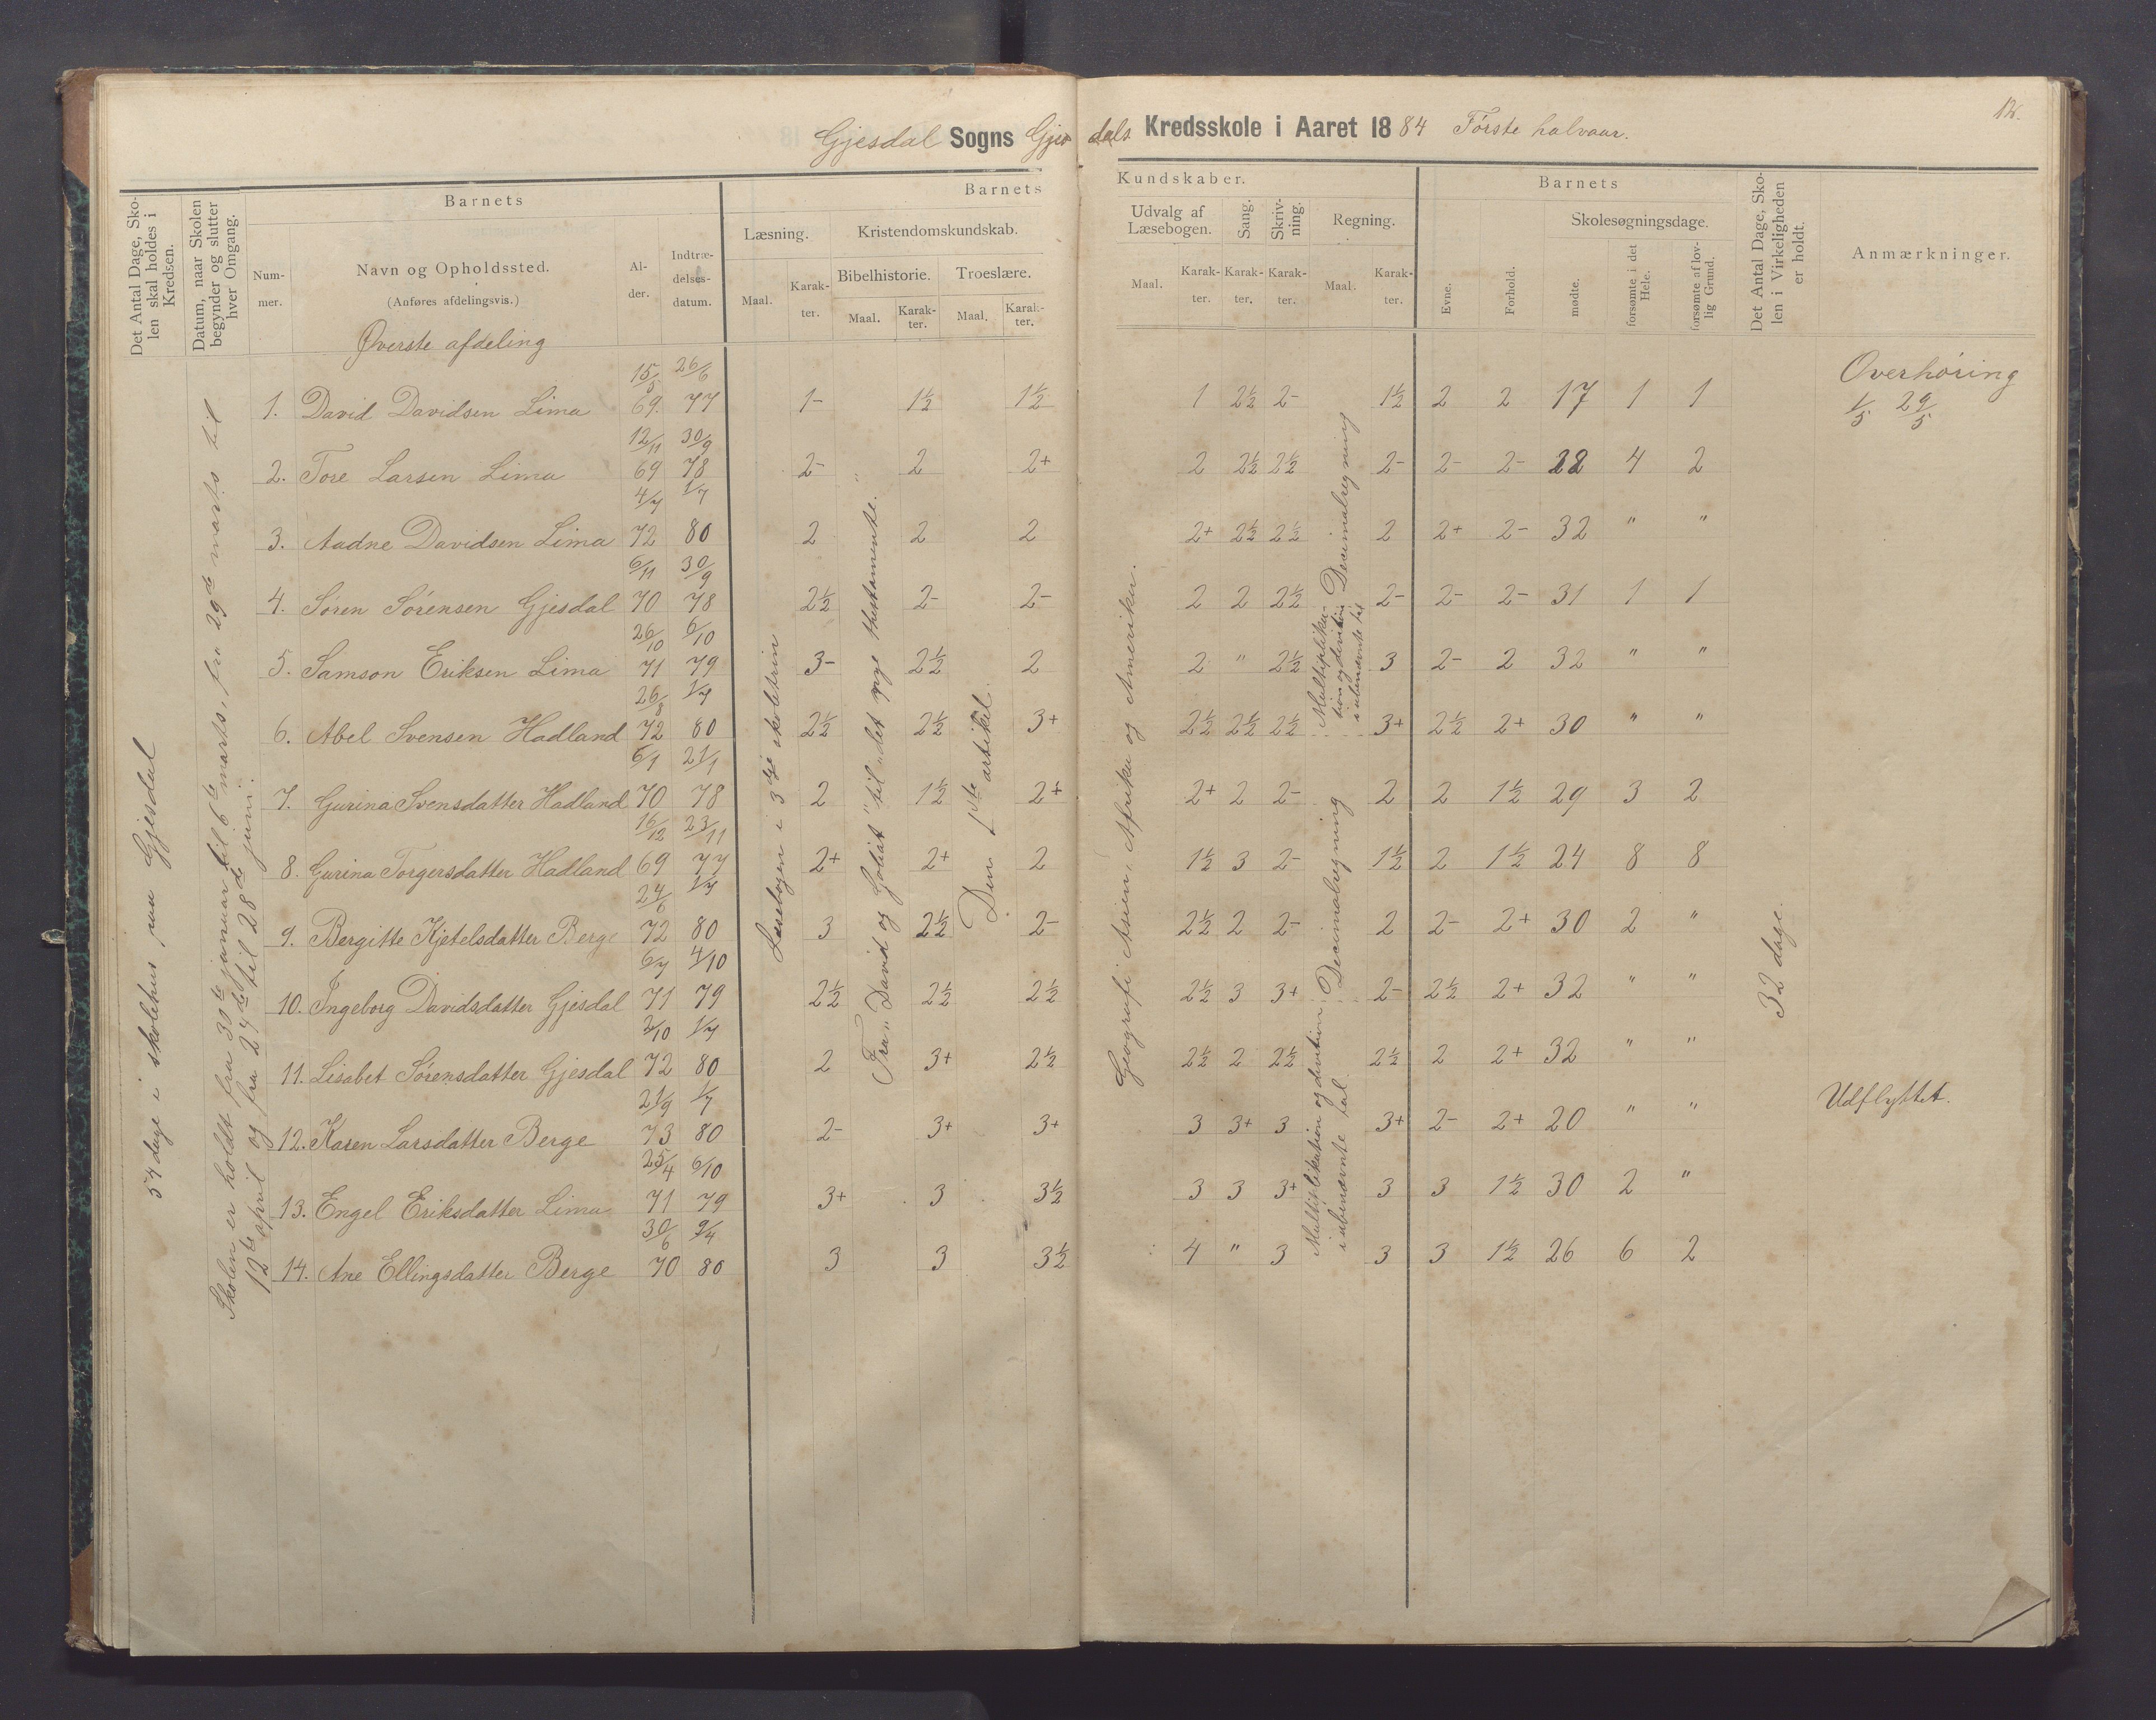 12.
Gjesdal Sogns Gjes dals Kredsskole i Aaret 1884 Første halvaar.
Det Antal Dage, Sko-
len skal holdes i
Kredsen.
Datum, naar Skolen
begynder og slutter
hver Omgang.
Barnets
Num-
mer.
Navn og Opholdssted.
(Anføres afdelingsvis.)
Al-
der.
Indtræ-
delses-
datum.
Barnets
Læsning.
Maal.
Karak-
ter.
Kristendomskundskab.
Bibelhistorie.
Maal.
Karak-
ter.
Troeslære.
Maal.
Karak-
ter.
Kundskaber.
Udvalg af
Læsebogen.
Maal.
Karak-
ter.
Sang.
Karak-
ter.
Skriv-
ning.
Karak-
ter.
Regning.
Maal.
Karak-
ter.
Barnets
Evne.
Forhold.
Skolesøgningsdage.
mødte.
forsømte i det
Hele.
forsømte af lov-
lig Grund.
Det Antal Dage, Sko-
len i Virkeligheden
er holdt.
Anmærkninger.
Øverste afdeling
57 dage i skolehus paa Gjesdal
Skolen er holdt fra 30te januar til 6te marts, fra 29de marts til
12te april og fra 27de til 28de juni.
Læsebogen i 3dje skoletrin
Fra „David og Goliat" til „det nye thestamente."
Den 1ste artikel.
Geografi: Asien, Afrika og Amerika.
Multiplika-
tion og division
i ubenævnte tal
Decimalregning
Multiplikation og division
i ubenævnte tal.
Decimalregning
32 dage.
Overhøring
1/5 29/5
1. David Davidsen Lima 15/5 69. 26/6 77 1- 1½ 1½ 1 2½ 2- 1½ 2 2 17 1 1
2. Tore Larsen Lima 12/11 69 30/9 78 2- 2 2+ 2 2½ 2½ 2- 2- 2- 22 4 2
3. Aadne Davidsen Lima 4/7 72 1/7 80 2 2 2 2+ 2½ 2½ 2 2+ 2- 32 " "
4. Søren Sørensen Gjesdal 6/11 70 30/9 78 2½ 2- 2- 2 2 2½ 2- 2- 2- 31 1 1
5. Samson Eriksen Lima 26/10 71 6/10 79 3- 2½ 2 2 " 2½ 3 2- 2 32 " "
6. Abel Svensen Hadland 26/8 72 1/7 80 2½ 2½ 3+ 2½ 2½ 2½ 3+ 2½ 2+ 30 " "
7. Gurina Svensdatter Hadland 6/1 70 21/1 78 2 1½ 2+ 2+ 2 2- 2 2 1½ 29 3 2
8. Gurina Torgersdatter Hadland 16/12 69 23/11 77 2+ 2+ 2 1½ 3 2- 1½ 2 1½ 24 8 8
9. Bergitte Kjetelsdatter Berge 24/6 72 1/7 80 3 2½ 2- 2½ 2 2- 2 2- 2+ 30 2 "
10. Ingeborg Davidsdatter Gjesdal 6/7 71 4/10 79 2½ 2½ 2½ 2½ 3 3+ 2- 2½ 2+ 32 " "
11. Lisabet Sørensdatter Gjesdal 2/10 72 1/7 80 2 3+ 2½ 2½ 2 2½ 2½ 2 2+ 32 " "
12. Karen Larsdatter Berge 21/9 73 1/7 80 2- 3+ 3+ 3 3+ 3 3+ 2- 2+ 20 " " Udflyttet.
13. Engel Eriksdatter Lima 25/4 71 6/10 79 3+ 3 3½ 3 3 3+ 3 3 1½ 30 2 "
14. Ane Ellingsdatter Berge 30/6 70 9/4 80 3 3 3½ 4 " 3 3 3 1½ 26 6 2